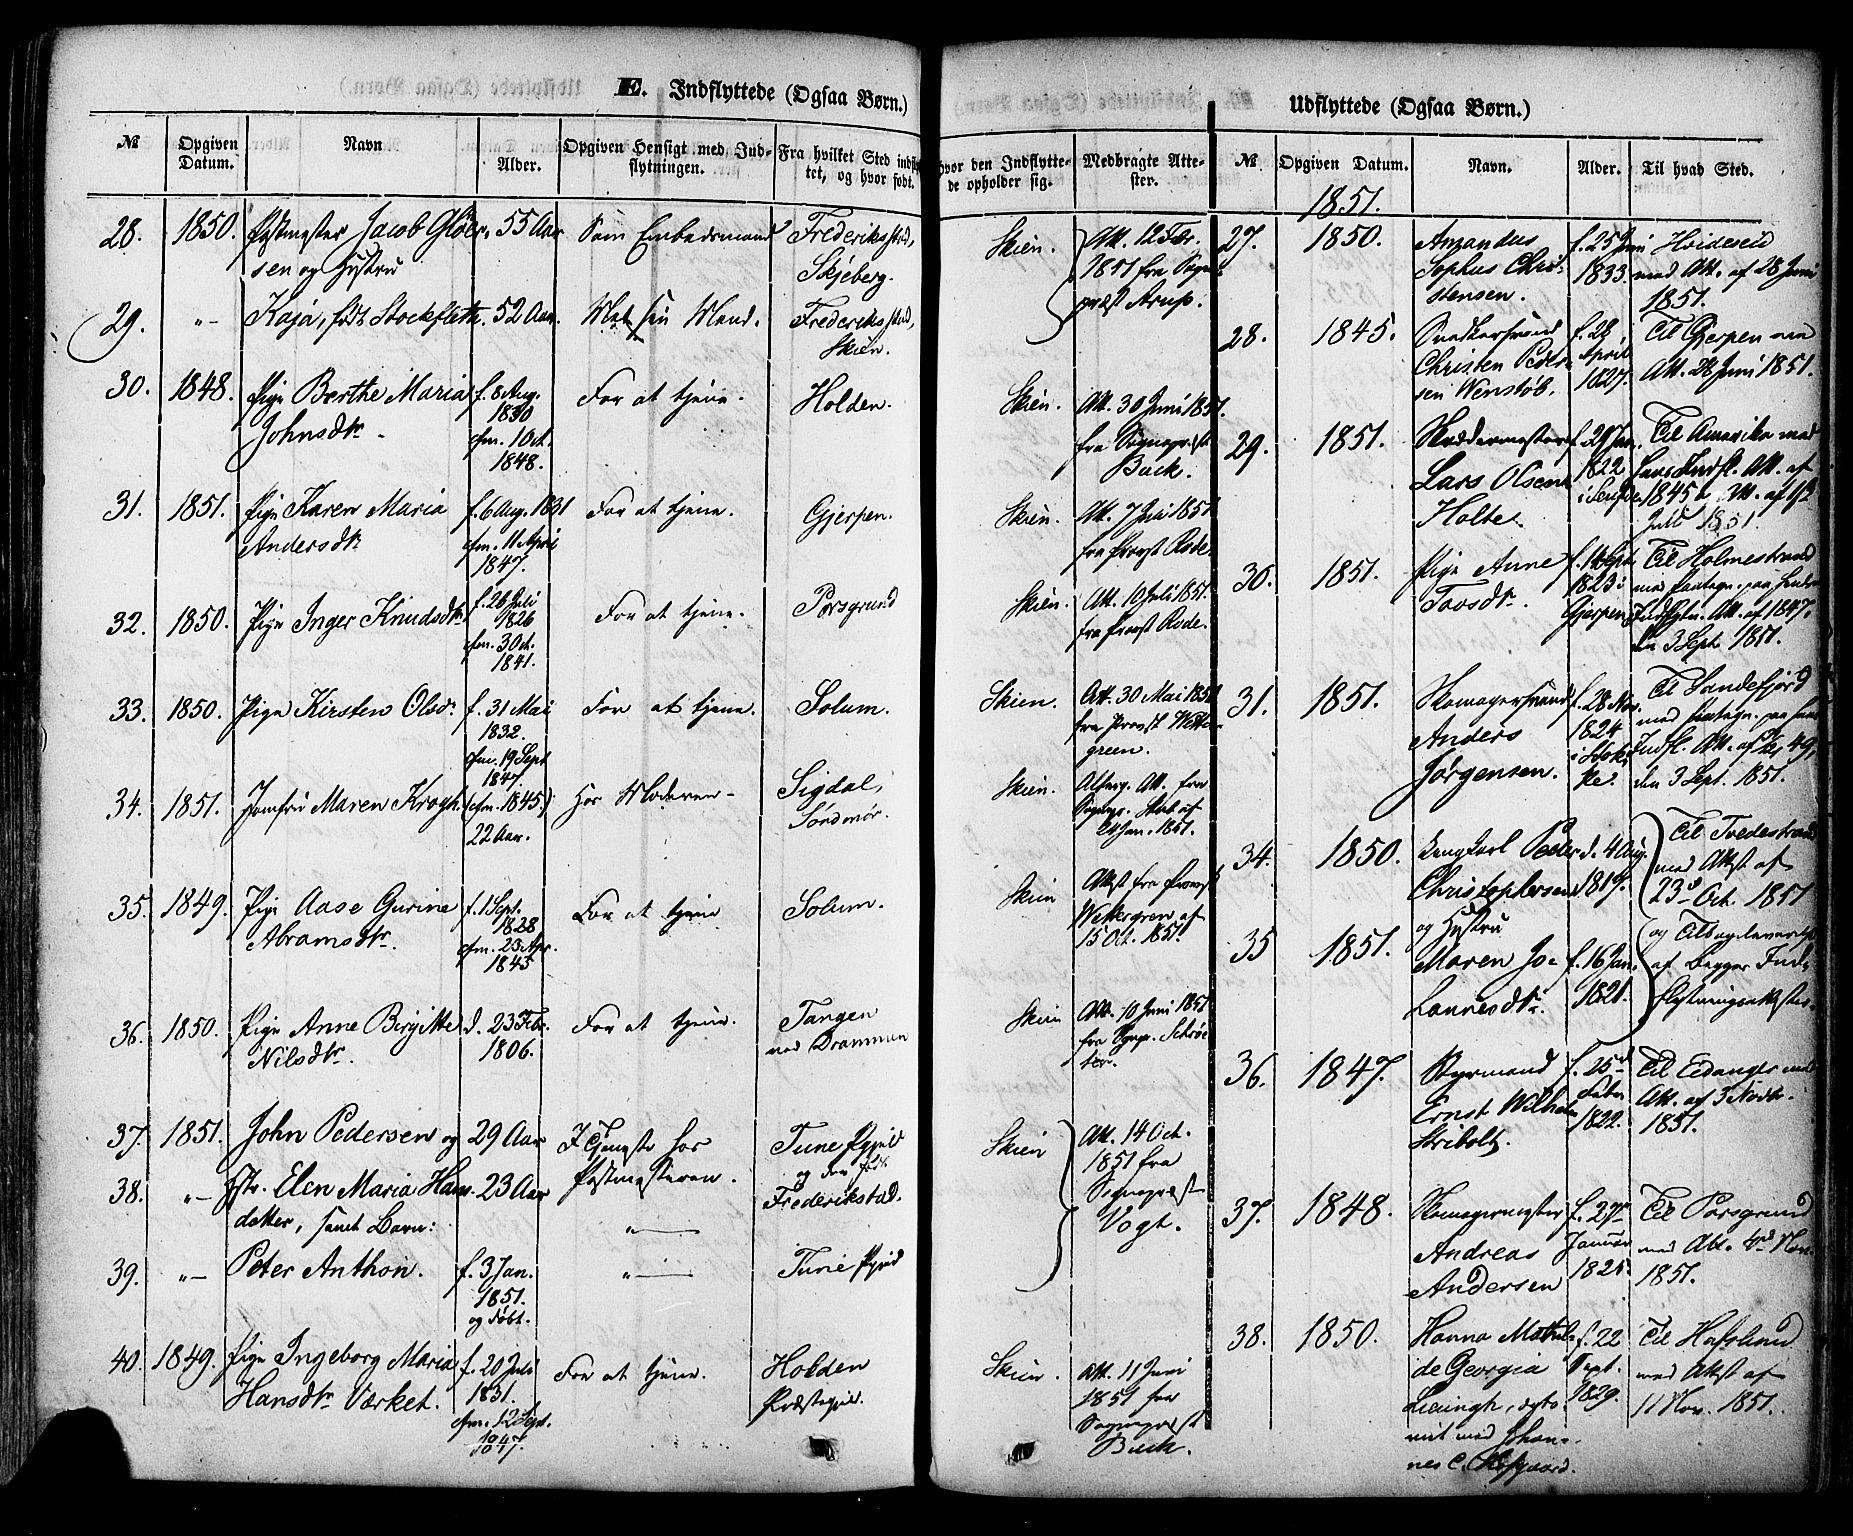 E. Indflyttede (Ogsaa Børn.)
№ Opgiven Datum. Navn Alder. Opgiven Hensigt med Indflytningen. Fra hvilket Sted indflyttet, og hvor født.
hvor den Indflyttede opholder sig. Medbragte Attester.
28. 1850. Postmester Jacob Gløersen og Hustru 55 Aar Som Embedsmand Frederiksstad, Skjeberg. Skien. Att. 12 Febr. 1851 fra Sognepræst Arup.
29. -"- Kaja, født Stockfleth. 52 Aar. Med sin Mand. Frederiksstad, Skien.
30. 1848. Pige Berthe Maria Johnsdtr. f. 8 Aug. 1830 cfm. 1 Oct. 1848. For at tjene. Holden. Skien. Att. 30 Juni 1851 fra Sognepræst Buck.
31. 1851. Pige Karen Maria Andersdtr. f. 6 Aug. 1831 cfm. 11 April 1847. For at tjene. Gjerpen. Skien. Att. 7 Juli 1851 fra Provst Rode.
32. 1850. Pige Inger Knudsdtr. f. 26 Juli 1826 cfm. 3 Oct. 1841. For at tjene. Porsgrund Skien. Att. 10 Juli 1851. fra Provst Rode.
33. 1850. Pige Kirsten Olsdr. f. 31 Mai 1832. cfm. 19 Sept 1847 For at tjene. Solum. Skien. Att. 30 Mai 1851 fra Provst Wettergreen.
34. 1851. Jomfru Maren Krogh. (cfm. 1845.) 22 Aar. Hos Moderen - Sigdal, Søndmør. Skien. Att. fra Sognepr. af 24 Jan. 1851.
35. 1849. Pige Aase Gurine Abramsdtr. f. 1 Sept. 1828 cfm. 23 Apr. 1843 For at tjene Solum. Skien Attest fra Provst Wettergren af 15 Oct. 1851.
36. 1850. Pige Anne Birgitte Nilsdtr. d. 23 Febr. 1806. For at tjene. Tangen ved Drammen Skien Att. 10 Juni 1851 fra Sognepr. Schrøeter.
37. 1851. John Pedersen og 29 Aar I Tjeneste hos Postmesteren. Tune Pgjeld Skien Att. 14 Oct. 1851 fra Sognepræst Vogt.
38. "- Hstr. Elen Maria Hansdatter, samt Barn: 23 Aar -"- og den født Frederikstad.
39. "- Peter Anthon. f. 3 Jan. 1851. og døbt. -"- Tune Pgjeld
40. 1849. Pige Ingeborg Maria Hansdtr. Værket. f. 20 Juli 1831. cfm. 12 Sept. 1847. For at tjene. Holden Præstegjeld. Skien. Att. 11 Juni 1851 fra Sognepræst Buck.
Udflyttede (Ogsaa Børn.)
№ Opgiven Datum. Navn. Alder. Til hvad Sted.
1851.
27. 1850. Amandus Sophus Christensen. f. 25 Juni 1833. Hvideseid med Att. af 28 Juni 1851.
28. 1845. Snedkersvend Christen Pedersen Wenstøb. f. 28 April 1827. Til Gjerpen med Att. 28 Juni 1851.
29. 1851. Skræddermester Lars Olsen Holte. f. 29 Jan. 1822 Til Amerika med hans Indfl. Att. af 1845 Att. af 12 Juli 1851.
30. 1851. Pige Anne Tovsdtr. f. 14 Sept. 1823 i Gjerpen Til Holmestrand med paategn. paa hendes Indflytn. Att. af 1847. den 3 Sept. 1851.
31. 1851. Skomagersvend Anders Jørgensen. f. 28 Nov. 1824 i Stokke. Til Sandefjord med paategn. paa hans Indfl. Att. af 49, den 3 Sept. 1851.
34. 1850. Peder Christophersen og Hustru d. 4 Aug. 1819. Til Tvedestrand med Attest af 23d Oct. 1851
35 1851. Maren Johannesdtr. f. 16 Jan. 1821. og Tilbagelevering af begges Indflytningsattester.
36. 1847. Styrmand Ernst Wilhelm Stribolt. f. 25d Feber 1822. Til Eidanger med Att. af 3 Novbr. 1851.
37. 1848. Skomagermester Andreas Andersen f. 27 Januar 1825. Til Porsgrund med Att. 4d Nov. 1851.
38. 1850. Hanna Mathilde Georgia f. 22 Sept. 1829. Til Hafslund med Attest af 11 Nov. 1851.
med Johannes C.